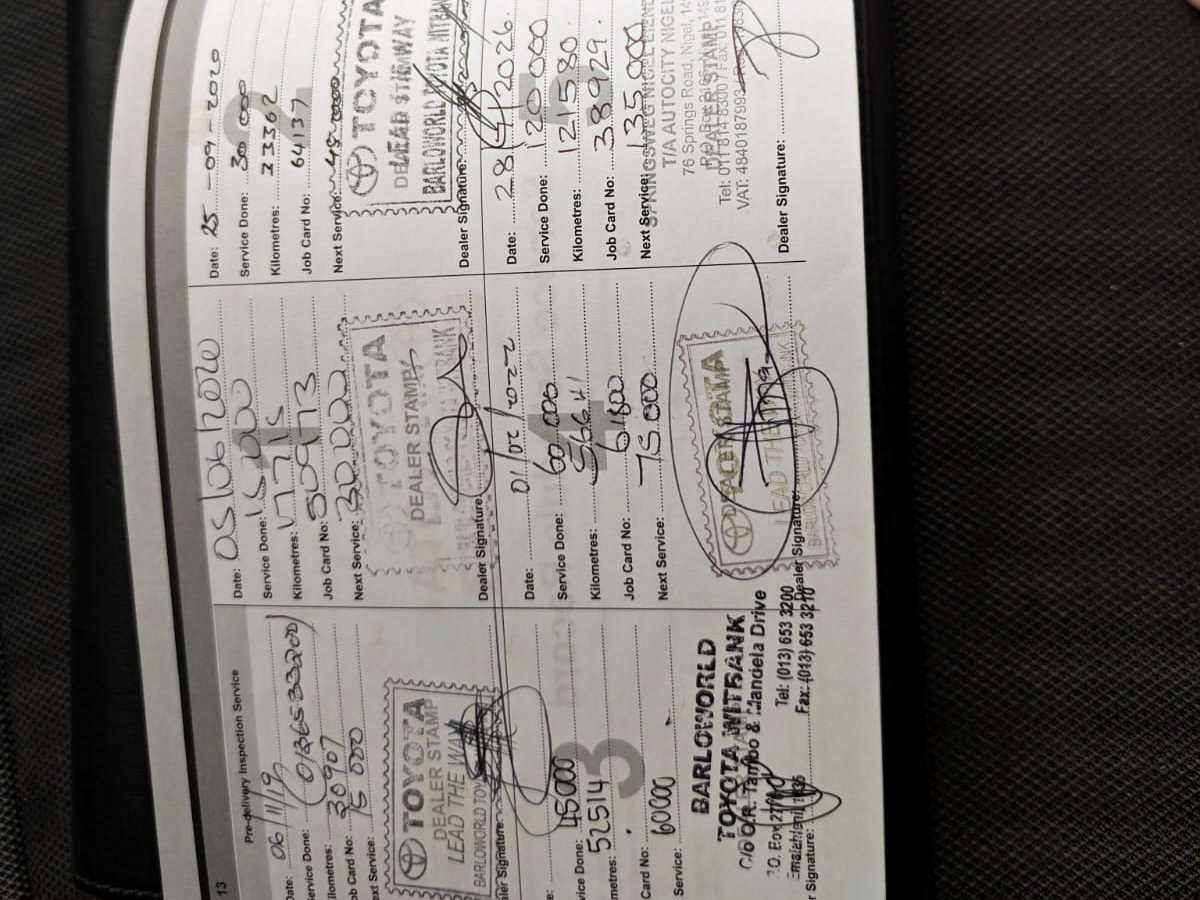 13
Pre-delivery Inspection Service
Date: 06/11/19
Service Done: (0136533200)
Kilometres:
Job Card No: 30907
Next Service: 15 000
TOYOTA
DEALER STAMP
LEAD THE WAY
BARLOWORLD TOYO
Dealer Signature:
Date: 05/06/2020
Service Done: 15000
Kilometres: 17715
Job Card No: 50973
Next Service: 30000
TOYOTA
DEALER STAMP
BANK
Dealer Signature:
2
Date: 25-09-2020
Service Done: 30 000
Kilometres: 33362
Job Card No: 64137
Next Service: 45 0000
TOYOTA
DEALER STAMP
LEAD THE WAY
BARLOWORLD TOYOTA WITBAN
Dealer Signature:
3
Service Done: 45000
Kilometres: 52514
Card No:
Service: 60000
BARLOWORLD
TOYOTA WITBANK
C/o O.R. Tambo & Mandela Drive
P.O. Box
Emalahleni 1035
Tel: (013) 653 3200
Fax: (013) 653 3210
Signature:
4
Date: 01/02/2022
Service Done: 60 000
Kilometres: 56641
Job Card No: 61800
Next Service: 75 000
TOYOTA
DEALER STAMP
LEAD THE
BARLOWORLD
Dealer Signature:
5
Date: 28/4/2026
Service Done: 120 000
Kilometres: 121580
Job Card No: 38929
Next Service: 135 000
SPRINGSWEG NIGEL EIEND
T/A AUTOCITY NIGEL
76 Springs Road, Nigel, 14
DEALER STAMP
Tel: 011 814 8300 / Fax: 011 81
VAT: 4840187993
Dealer Signature: